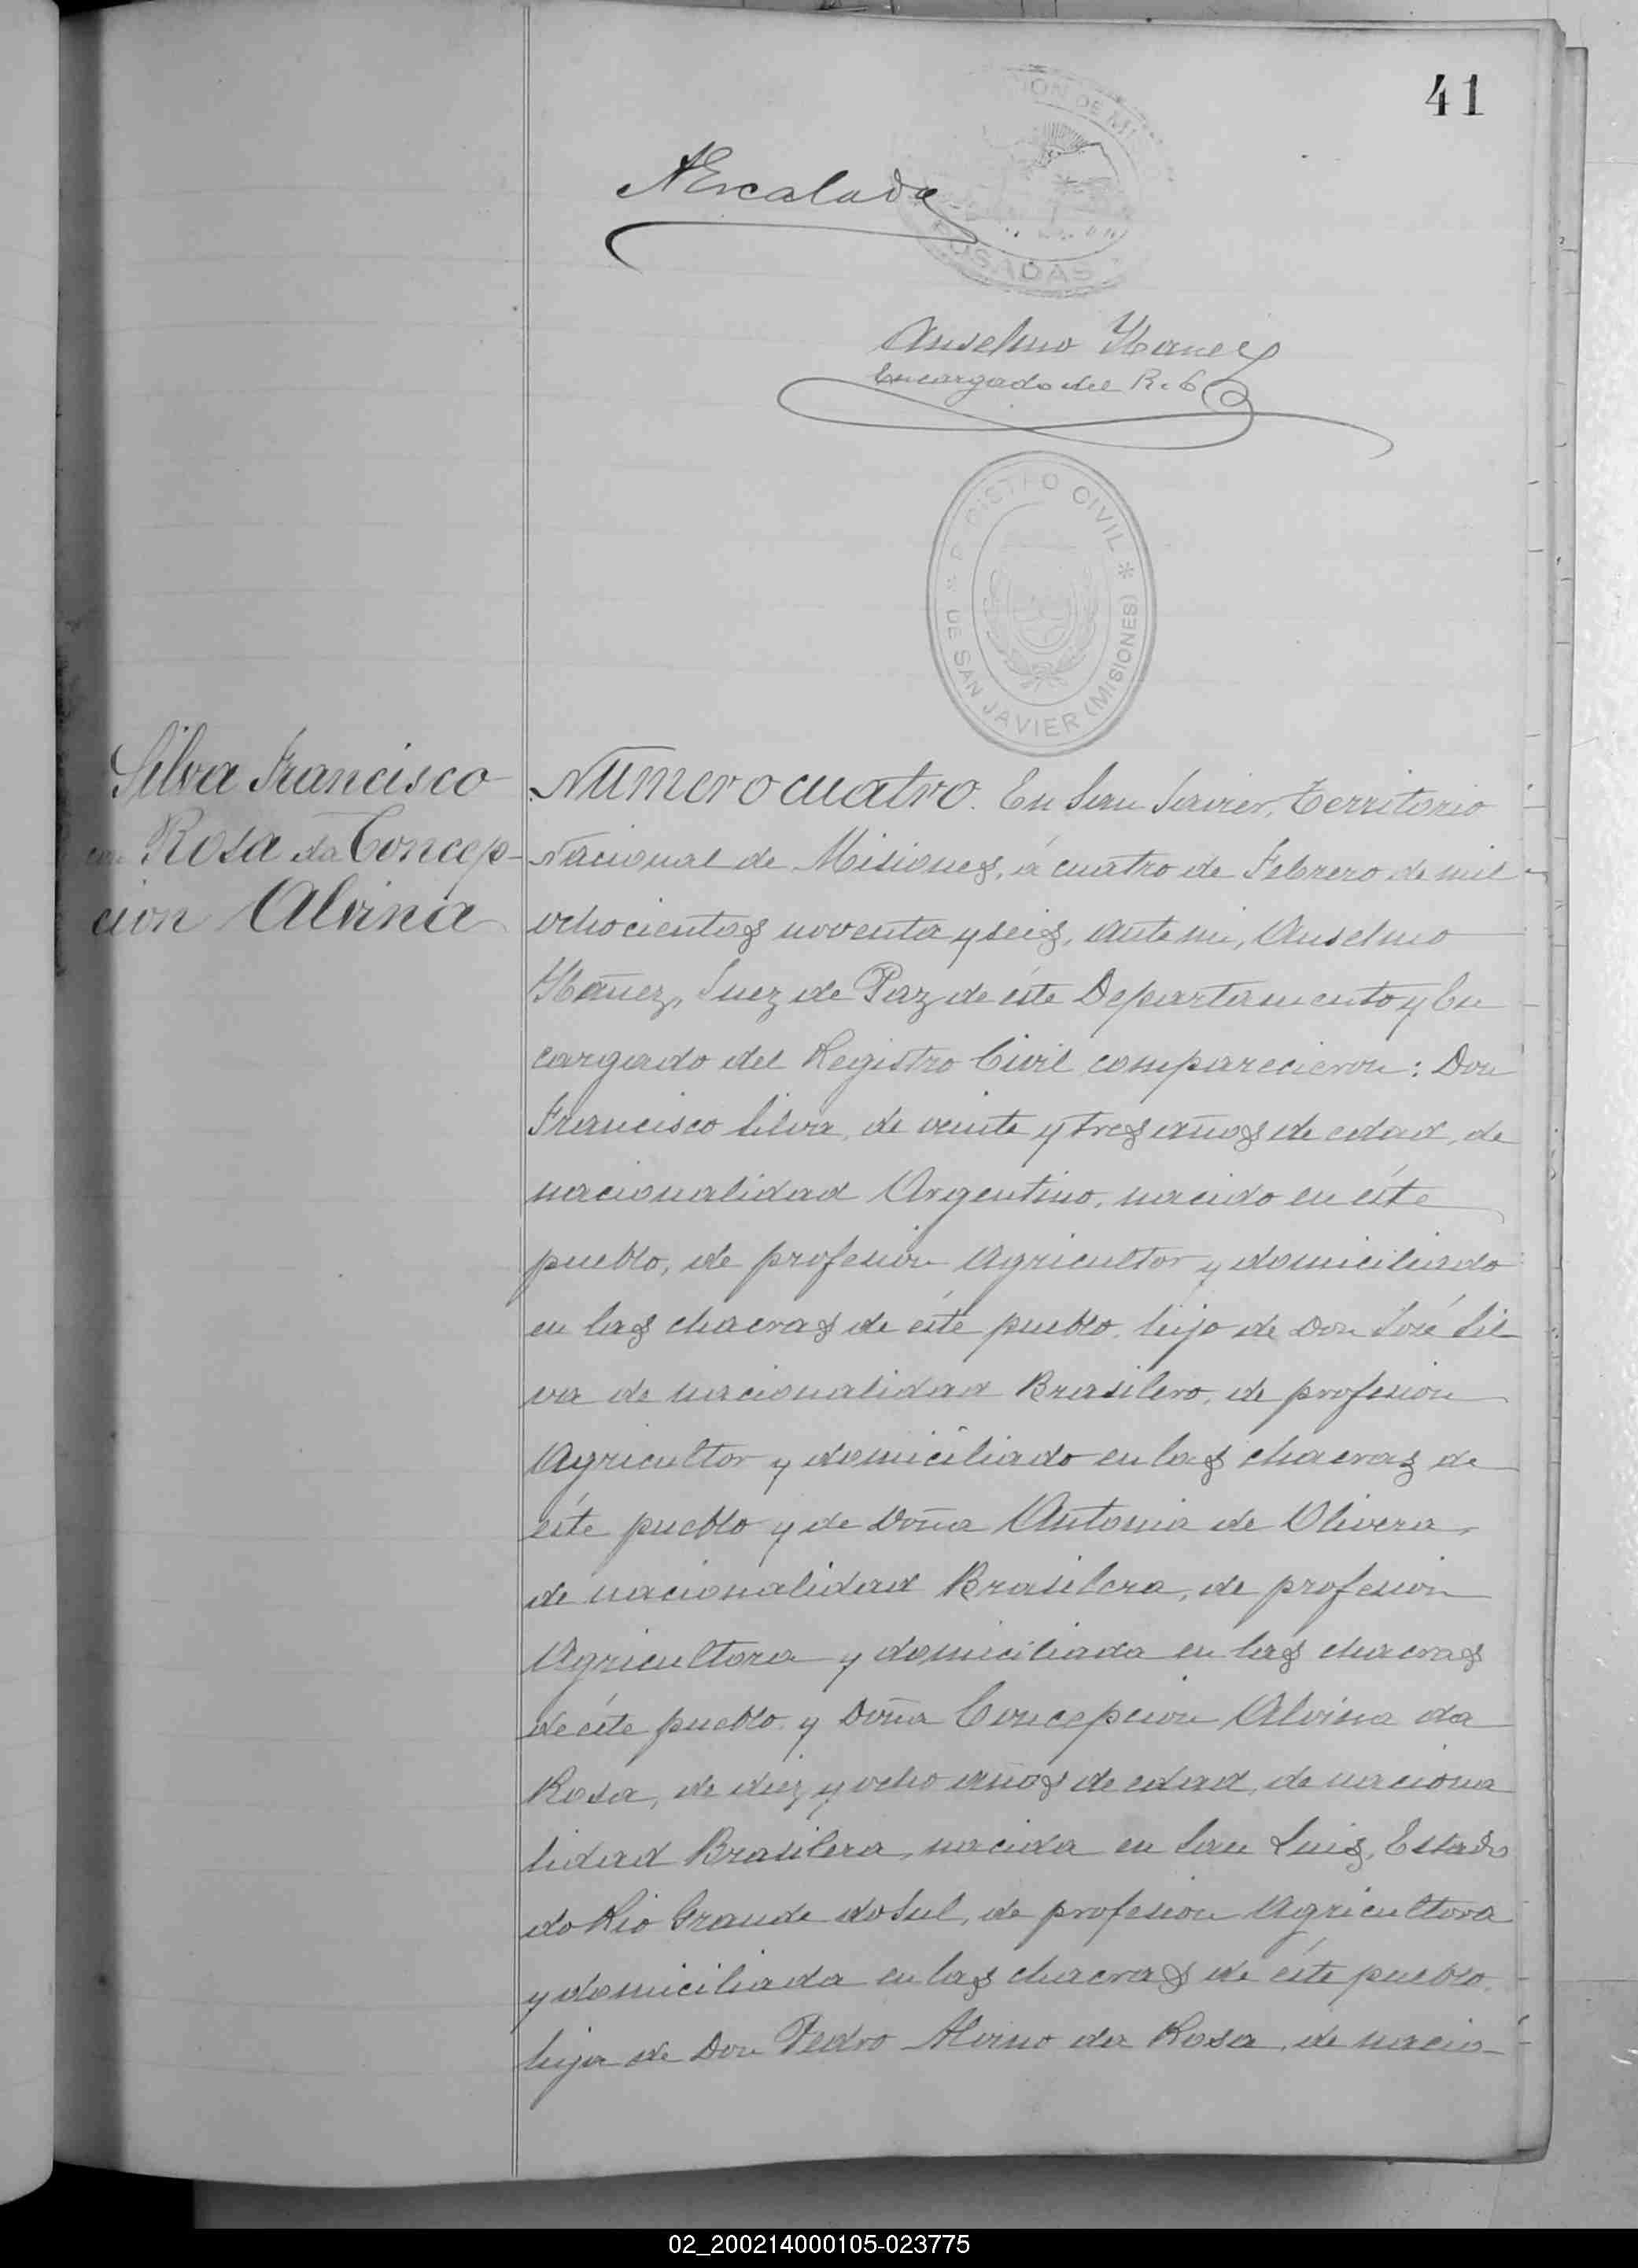 41
NEscalada
ION DE MI
POSADAS
Anselmo Ybañez
Encargado del R. C
REGISTRO CIVIL
DE SAN JAVIER (MISIONES)
Silva Francisco
con Rosa da Concep-
cion Alvina
Número cuatro. En San Javier, Territorio
Nacional de Misiones, á cuatro de Febrero de mil
ochocientos noventa y seis, ante mi, Anselmo
Ybañez, Juez de Paz de éste Departamento y En
cargado del Registro Civil comparecieron: Don
Francisco Silva, de veinte y tres años de edad, de
nacionalidad Argentino, nacido en éste
pueblo, de profesion Agricultor y domiciliado
en las chacras de éste pueblo, hijo de Don José Sil
va de nacionalidad Brasilero, de profesion
Agricultor y domiciliado en las chacras de
éste pueblo y de Doña Antonia de Olivera,
de nacionalidad Brasilera, de profesion
Agricultora y domiciliada en las chacras
de éste pueblo y Doña Concepcion Alvina da
Rosa, de diez y ocho años de edad, de naciona
lidad Brasilera, nacida en San Luis, Estado
do Rio Grande do Sul, de profesion Agricultora
y domiciliada en las chacras de éste pueblo,
hija de Don Pedro Alvino da Rosa, de nacio-
02_200214000105-023775